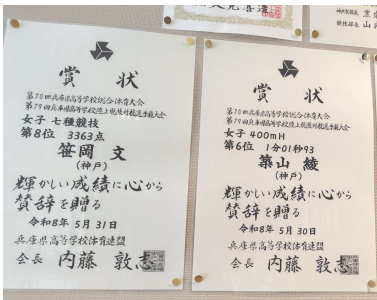 賞状
第70回兵庫県高等学校総合体育大会
第79回兵庫県高等学校陸上競技対校選手権大会
女子 七種競技
第8位 3363点
笹岡 文
(神戸)
輝かしい成績に心から
賛辞を贈る
令和8年 5月 31日
兵庫県高等学校体育連盟
会長 内藤 敦志
賞状
第70回兵庫県高等学校総合体育大会
第79回兵庫県高等学校陸上競技対校選手権大会
女子 400mH
第6位 1分01秒93
築山 綾
(神戸)
輝かしい成績に心から
賛辞を贈る
令和8年 5月 30日
兵庫県高等学校体育連盟
会長 内藤 敦志